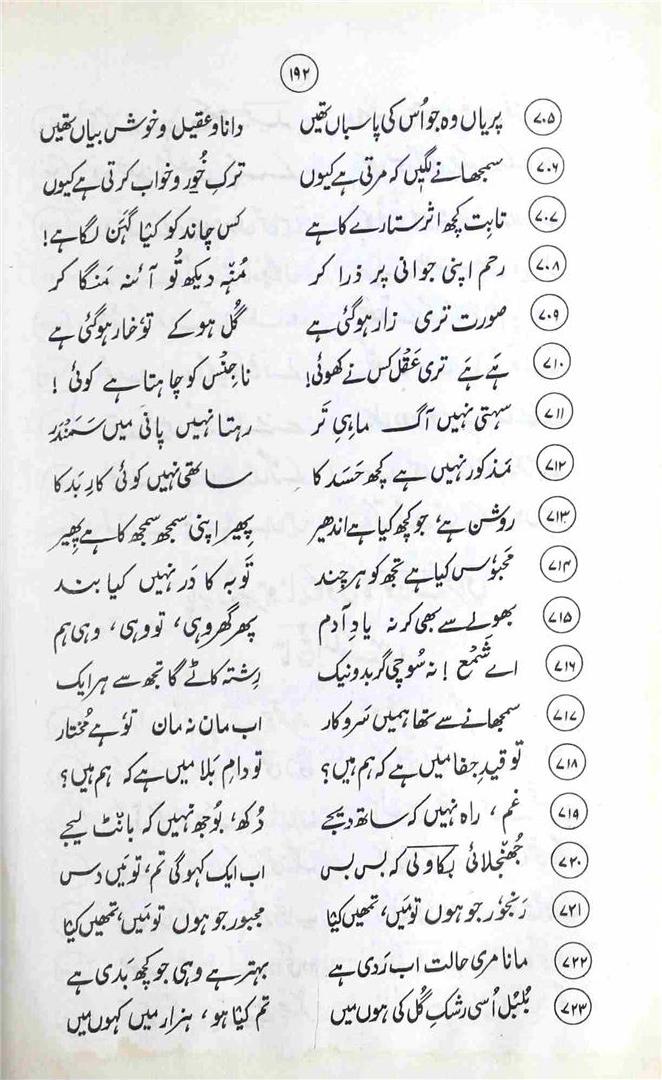 ۱۹۲
۷۰۵ پریاں وہ جو اُس کی پاسباں تھیں دانا و عقیل و خوش بیاں تھیں
۷۰۶ سمجھانے لگیں کہ مرتی ہے کیوں ترکِ خُور و خواب کرتی ہے کیوں
۷۰۷ ثابت کچھ اثر ستارے کا ہے کس چاند کو کیا گہَن لگا ہے!
۷۰۸ رحم اپنی جوانی پر ذرا کر مُنہ دیکھ تُو آئنہ مَنگا کر
۷۰۹ صورت تری زار ہو گئی ہے گُل ہو کے تو خار ہو گئی ہے
۷۱۰ ہے ہے تری عَقْل کس نے کھوئی! ناجِنْس کو چاہتا ہے کوئی !
۷۱۱ سہتی نہیں آگ ماہیِ تَر رہتا نہیں پانی میں سَمَنْدَر
۷۱۲ مَذکور نہیں ہے کچھ حَسَد کا ساتھی نہیں کوئی کارِ بَد کا
۷۱۳ روشن ہے، جو کچھ کیا ہے اندھیر پھیر اپنی سمجھ سمجھ کا ہے پھیر
۷۱۴ مَحبُوس کیا ہے تجھ کو ہر چند تَوبہ کا دَر نہیں کیا بند
۷۱۵ بھولے سے بھی کر نہ یادِ آدم پھر گھر وہی، تو وہی، وہی ہم
۷۱۶ اے شَمْع ! نہ سُوچی گر بدو نیک رِشتہ کاٹے گا تجھ سے ہر ایک
۷۱۷ سمجھانے سے تھا ہمیں سَروکار اب مان نہ مان تو ہے مُختار
۷۱۸ تو قیدِ جفا میں ہے کہ ہم ہیں؟ تو دامِ بَلا میں ہے کہ ہم ہیں؟
۷۱۹ غم، راہ نہیں کہ ساتھ دیجے دُکھ، بُوجھ نہیں کہ بانٹ لیجے
۷۲۰ جُھنْجلائی بکاولی کہ بس بس اب ایک کہو گی تم، تو مَیں دس
۷۲۱ رَنجُور جو ہوں تو مَیں، تمھیں کیا مجبور جو ہوں تو مَیں، تمھیں کیا
۷۲۲ مانا مری حالت اب رَدی ہے بہتر ہے وہی جو کچھ بَدی ہے
۷۲۳ بُلبُل اُسی رشکِ گُل کی ہوں میں تم کیا ہو، ہزار میں کہوں میں